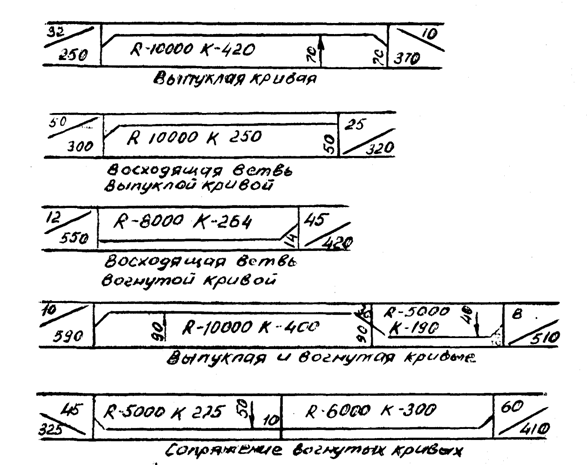 32 10
250 R-10000 K-420 70 70 370
Выпуклая кривая
50 25
300 R 10000 K 250 50 320
Восходящая ветвь
выпуклой кривой
12 R-8000 K-264 45
550 14 420
Восходящая ветвь
вогнутой кривой
10 R-5000 8
590 90 R-10000 K-400 90 K-190 40 510
Выпуклая и вогнутая кривые
45 R-5000 K 225 50 10 R-6000 K-300 60
325 410
Сопряжение вогнутых кривых